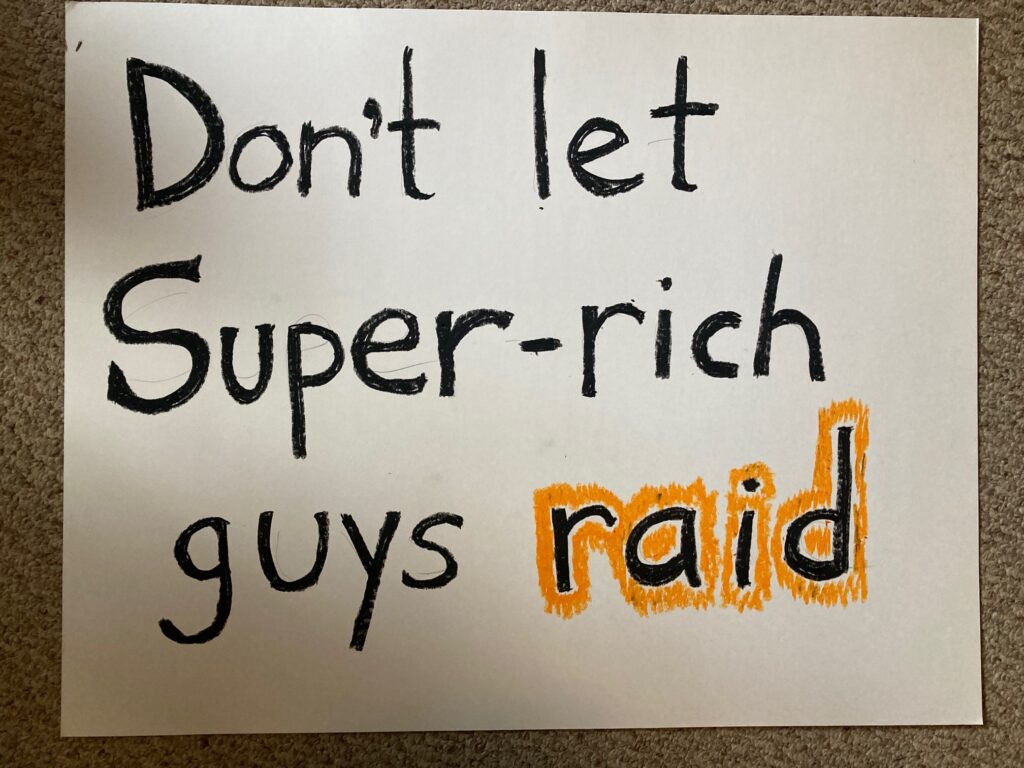 Don't let
Super-rich
guys raid